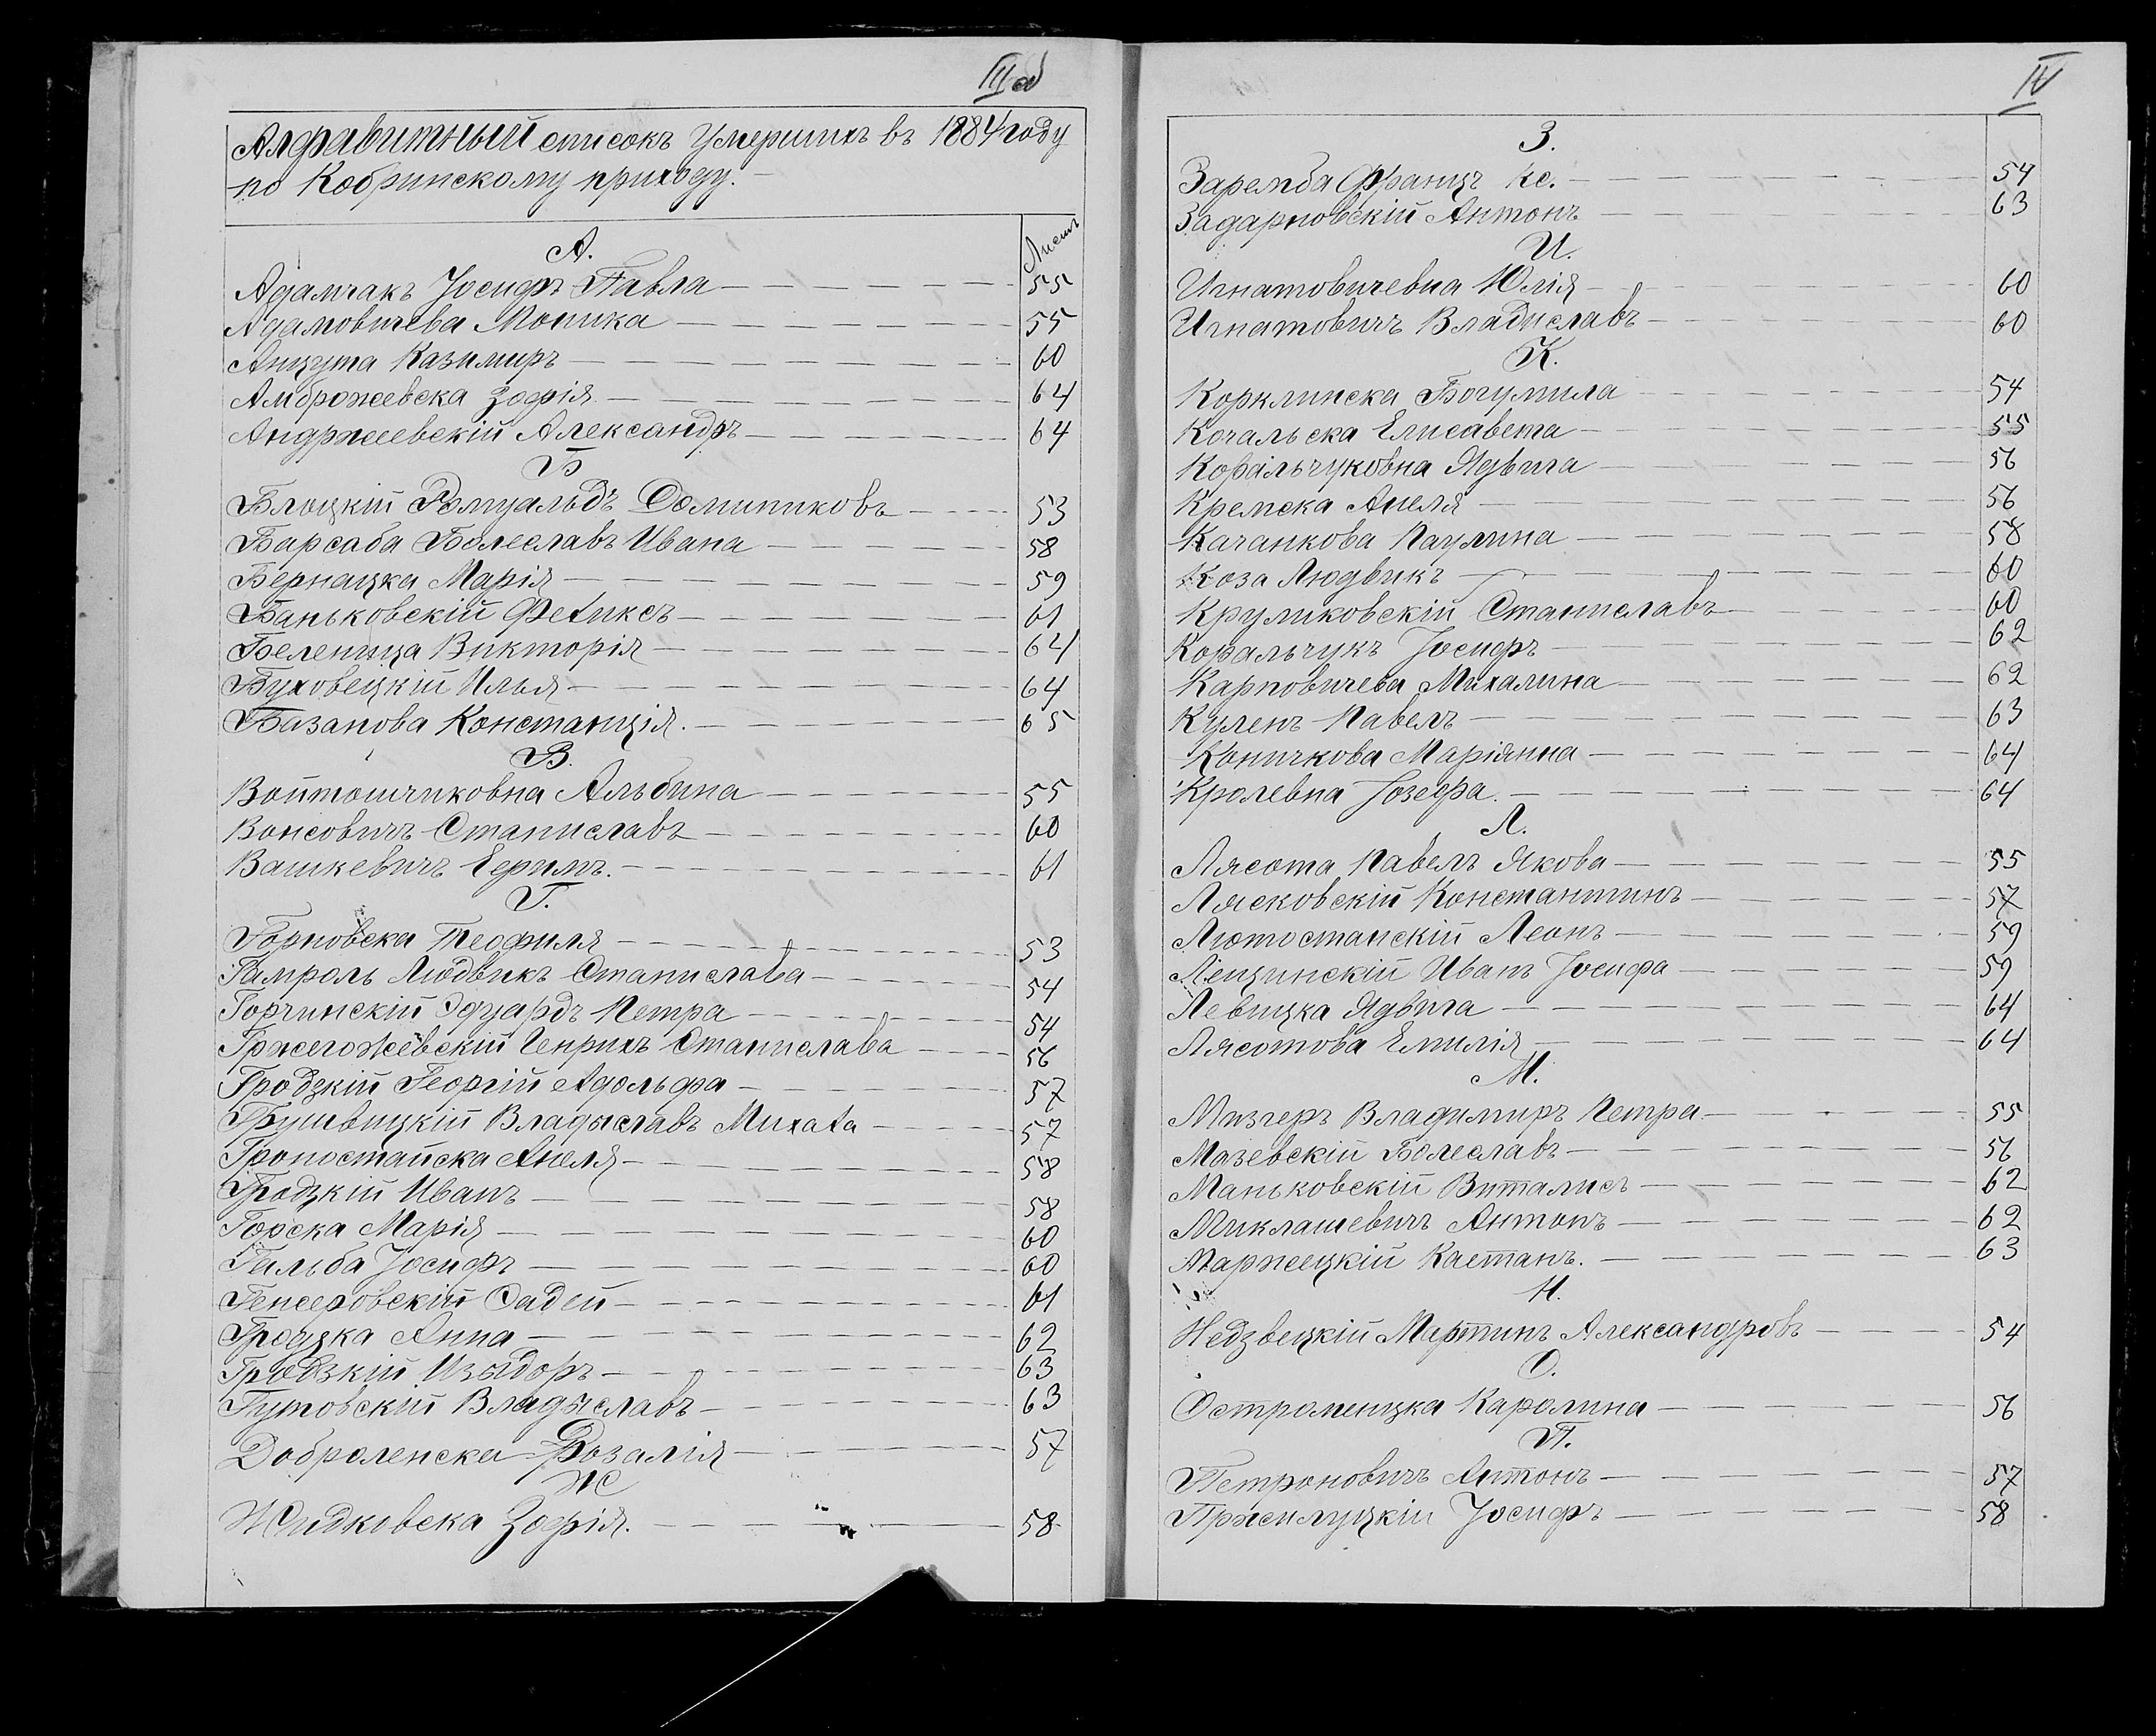 III об
Алфавитный списокъ умершихъ въ 1884 году
по Кобринскому приходу.
Листъ
А.
Адамчакъ Іосифъ Павла 55
Адамовичева Моника 55
Анцута Казимиръ 60
Амброжевска Зофія 64
Андржеевскій Александръ 64
Б
Блоцкій Ромуальдъ Доминиковъ 53
Барсаба Болеславъ Ивана 58
Бернацка Марія 59
Баньковскій Феликсъ 61
Беленица Викторія 64
Буховецкій Илья 64
Базанова Констанція. 65
В.
Войтошчиковна Альбина 55
Вонсовичъ Станиславъ 60
Вашкевичъ Ефимъ. 61
Г.
Горновска Теофиля 53
Гамроль Людвикъ Станислава 54
Горчинскій Эдуардъ Петра 54
Гржегожевскій Генрихъ Станислава 56
Гродзкій Георгій Адольфа 57
Грушвицкій Владыславъ Михала 57
Гропостайска Анеля 58
Гродзкій Иванъ 58
Горска Марія 60
Гальба Іосифъ 60
Генсеровскій Фадей 61
Гродзка Анна 62
Гродзкій Изыдоръ 63
Гутовскій Владыславъ 63
Д
Доброленска Розалія 57
Ж
Жидковска Зофія. 58
IV
З.
Заремба Францъ Кс. 54
Задарновскій Антонъ 63
И.
Игнатовичевна Юлія 60
Игнатовичъ Владиславъ 60
К.
Корклинска Богумила 54
Кочальска Елисавета 55
Ковальчуковна Ядвига 56
Кремска Анеля 56
Качанкова Паулина 58
Коза Людвикъ 60
Круликовскій Станиславъ 60
Ковальчукъ Іосифъ 62
Карповичева Михалина 62
Куленъ Павелъ 63
Коничкова Маріянна 64
Кролевна Іозефа. 64
Л.
Лясота Павелъ Якова 55
Лясковскій Константинъ 57
Лютостанскій Леонъ 59
Лещинскій Иванъ Іосифа 59
Левицка Ядвига 64
Лясотова Емилія 64
М.
Мизгеръ Владимиръ Петра 55
Мазевскій Болеславъ 56
Маньковскій Виталисъ 62
Миклашевичъ Антонъ 62
Маржецкій Каетанъ. 63
Н.
Недзвецкій Мартинъ Александровъ 54
О.
Остромецка Каролина 56
П.
Петроновичъ Антонъ 57
Пржисилуцкій Іосифъ 58